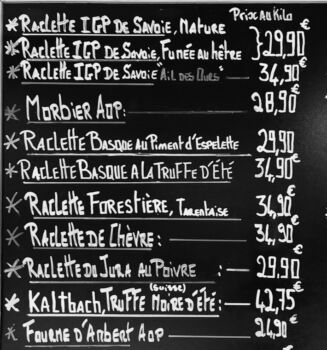 Prix Au Kilo
* Raclette IGP de Savoie, Nature
* Raclette IGP de Savoie, Fumée au hêtre } 29,90€
* Raclette IGP de Savoie "Ail des Ours" — 34,90€
* Morbier Aop: 28,90€
* Raclette Basque au Piment d'Espelette 29,90€
* Raclette Basque A la Truffe d'Été 34,90€
* Raclette Forestière, Tarentaise 34,90€
* Raclette de Chèvre: — 34,90€
* Raclette du Jura au Poivre : — 29.90€
* Kaltbach, Truffe (suisse) Noire d'été: — 42,75€
* Fourme d'Ambert Aop — 24,90€